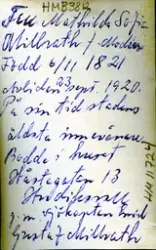 HMB3812
Fru Mathilda Sofia
Millrath f. Modin
Född 6/11 1821
Avliden 23 sept. 1920.
På sin tid stadens
äldsta innevånare,
Bodde i huset
gatan 13
Hudiksvall
g. m. sjökapten
Gustaf Millrath.
HM 11724